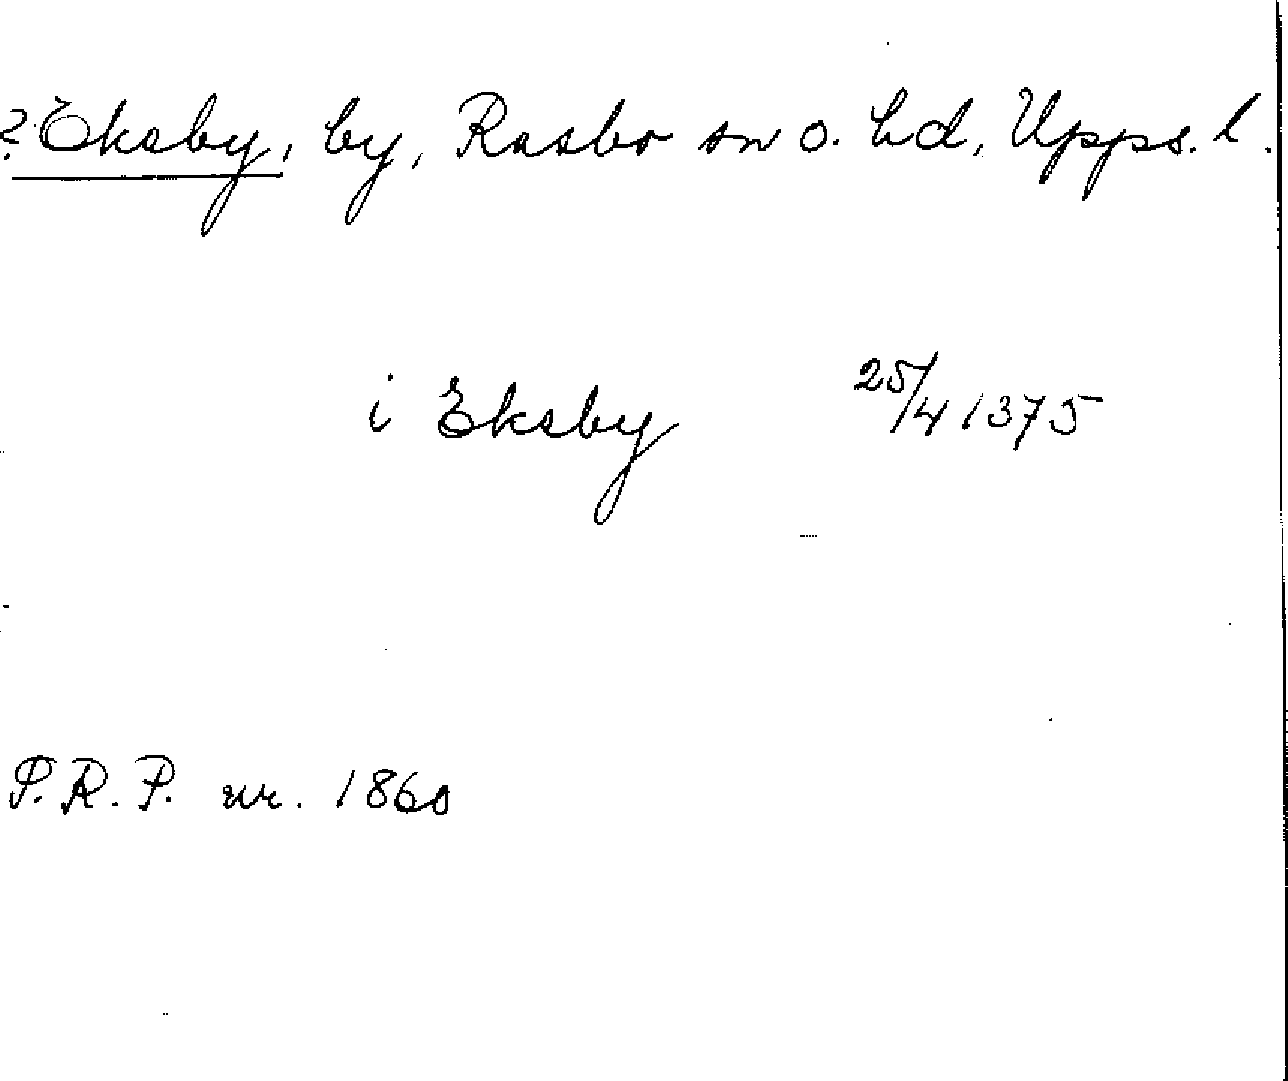 ? Eksby, by, Rasbo sn o. hd, Upps. l.
i Eksby 25/4 1375
P.R.P. nr. 1860